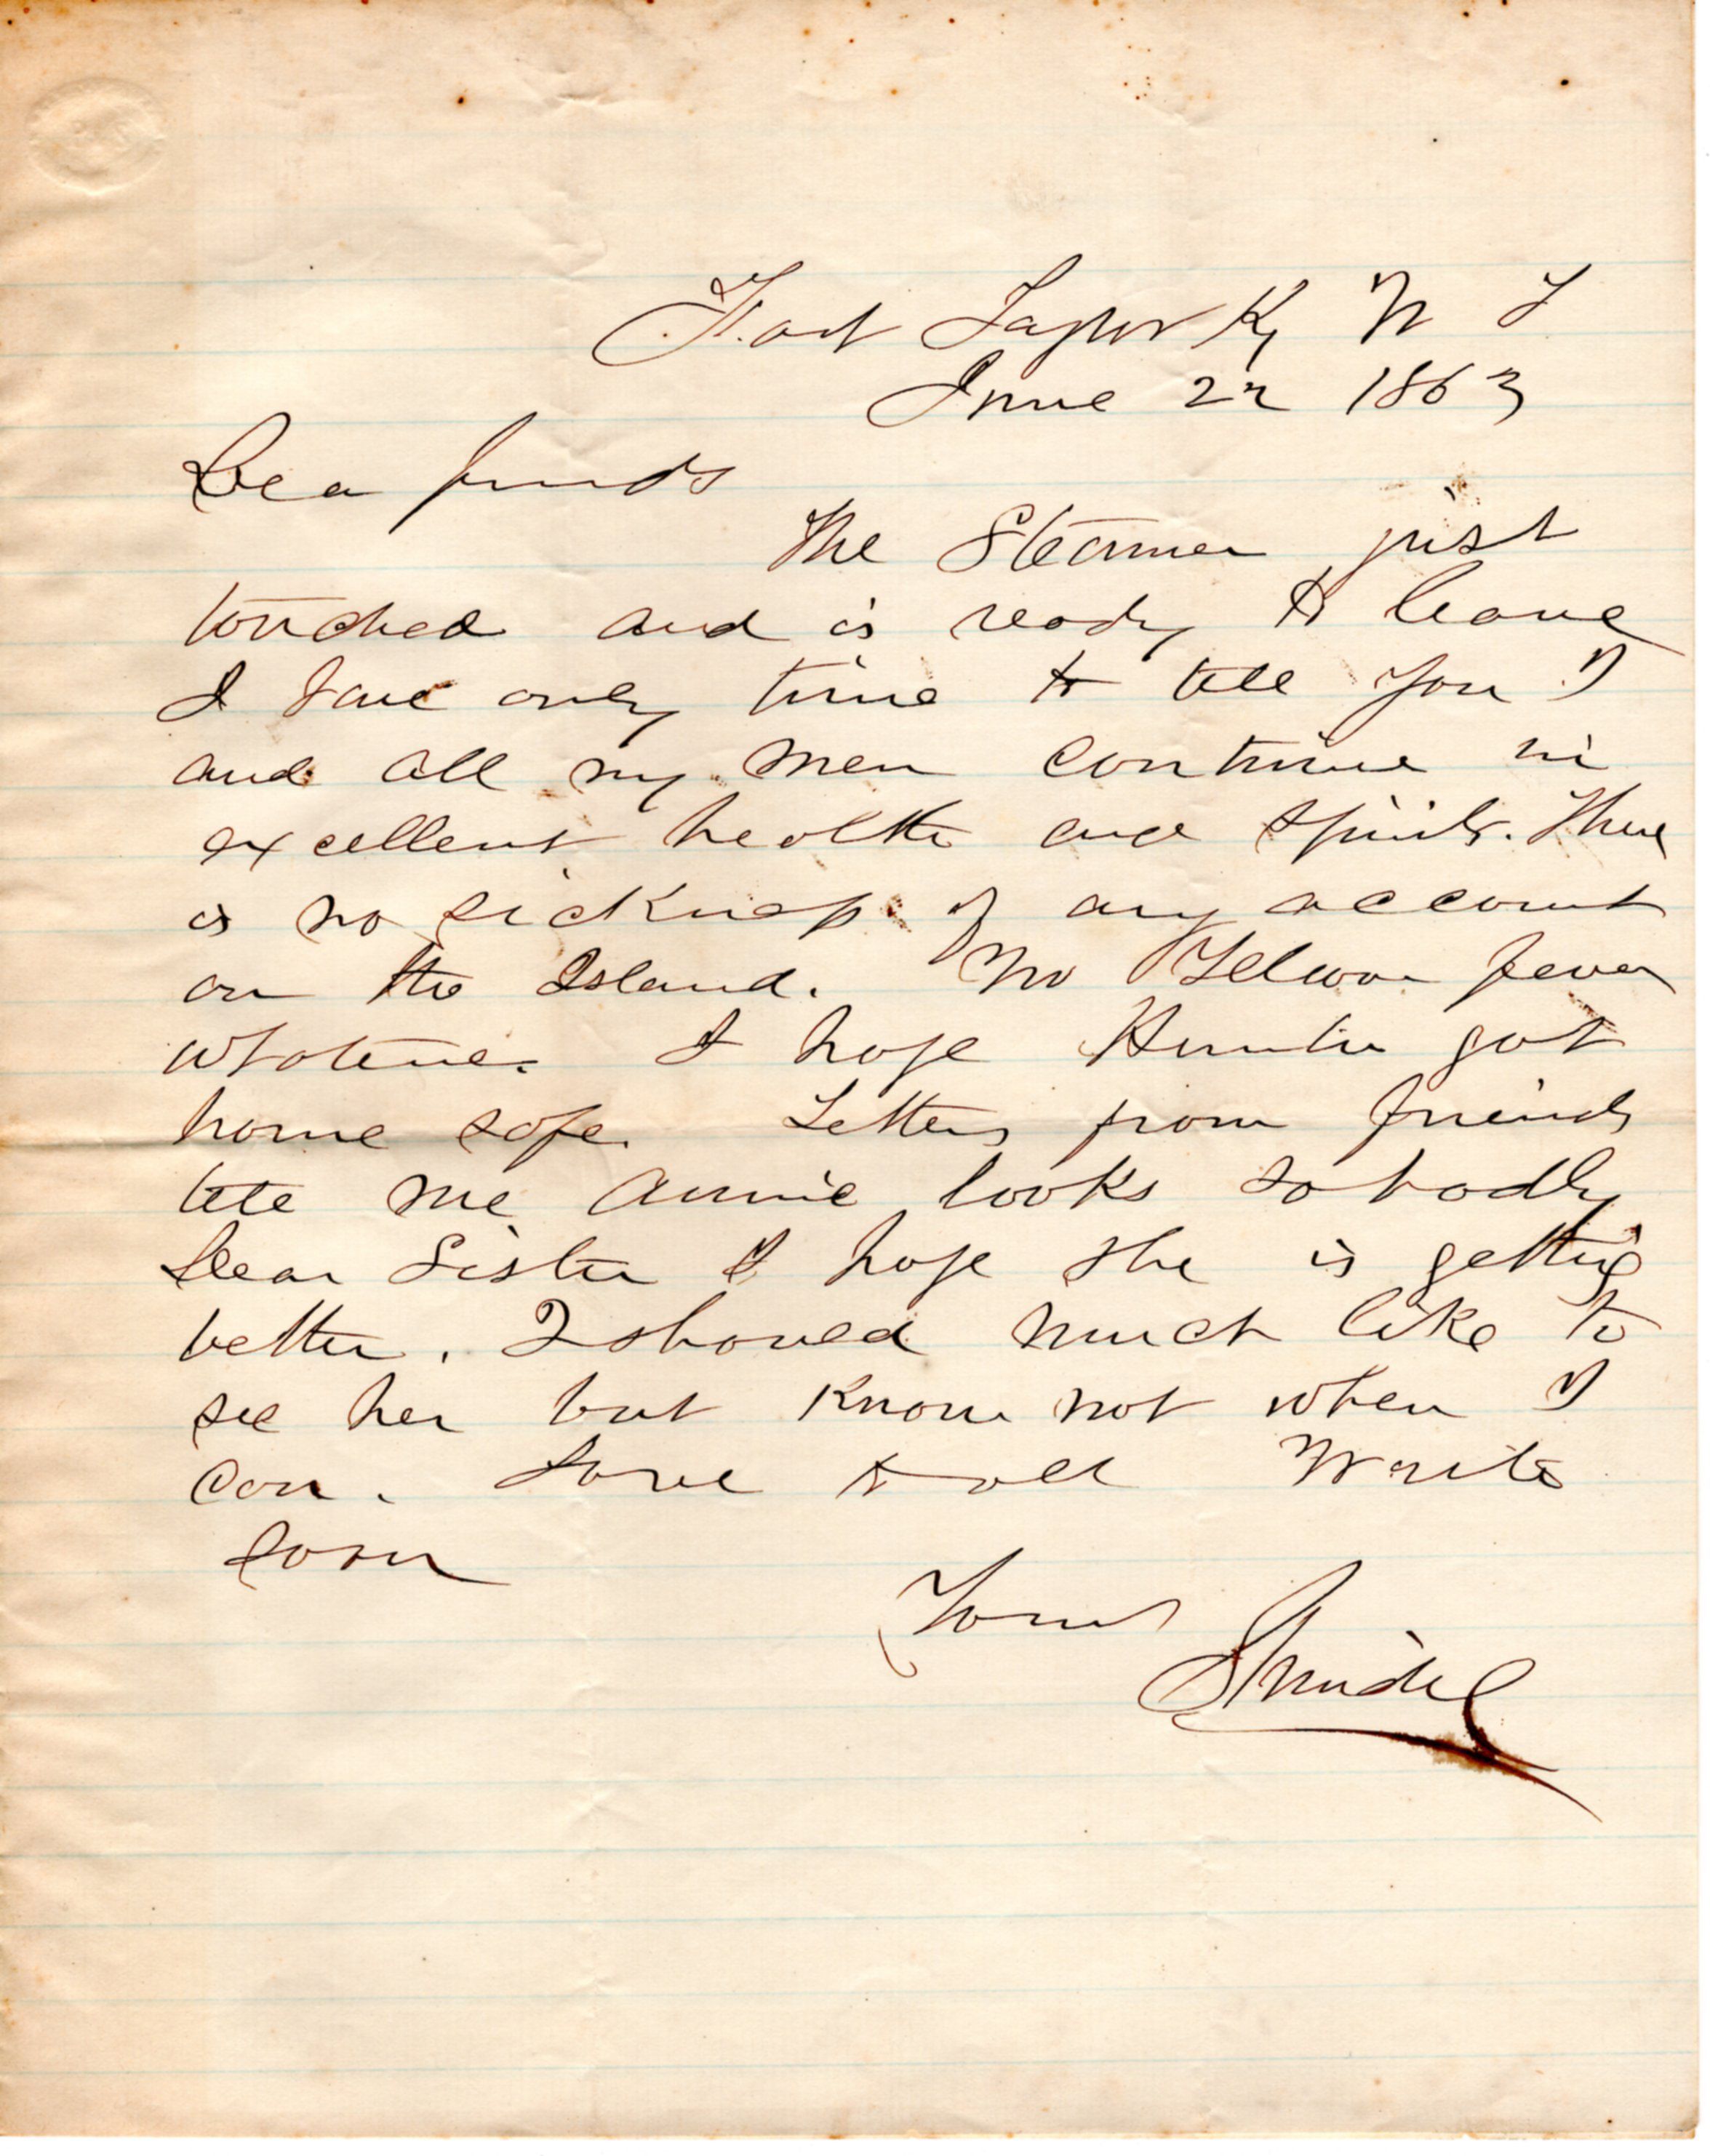 Fort Taylor Ky W F
June 22 1863
Dear friends
The Steamer just
touched and is ready to leave
I have only time to tell you I
and all my men continue in
excellent health and spirits. There
is no sickness of any account
on the Island. No Yellow fever
whatever. I hope Hunter got
home safe. Letters from friends
tell me Annie looks so badly
Dear Sister I hope she is getting
better. I should much like to
see her but know not when I
can. Love to all Write
soon
Yours